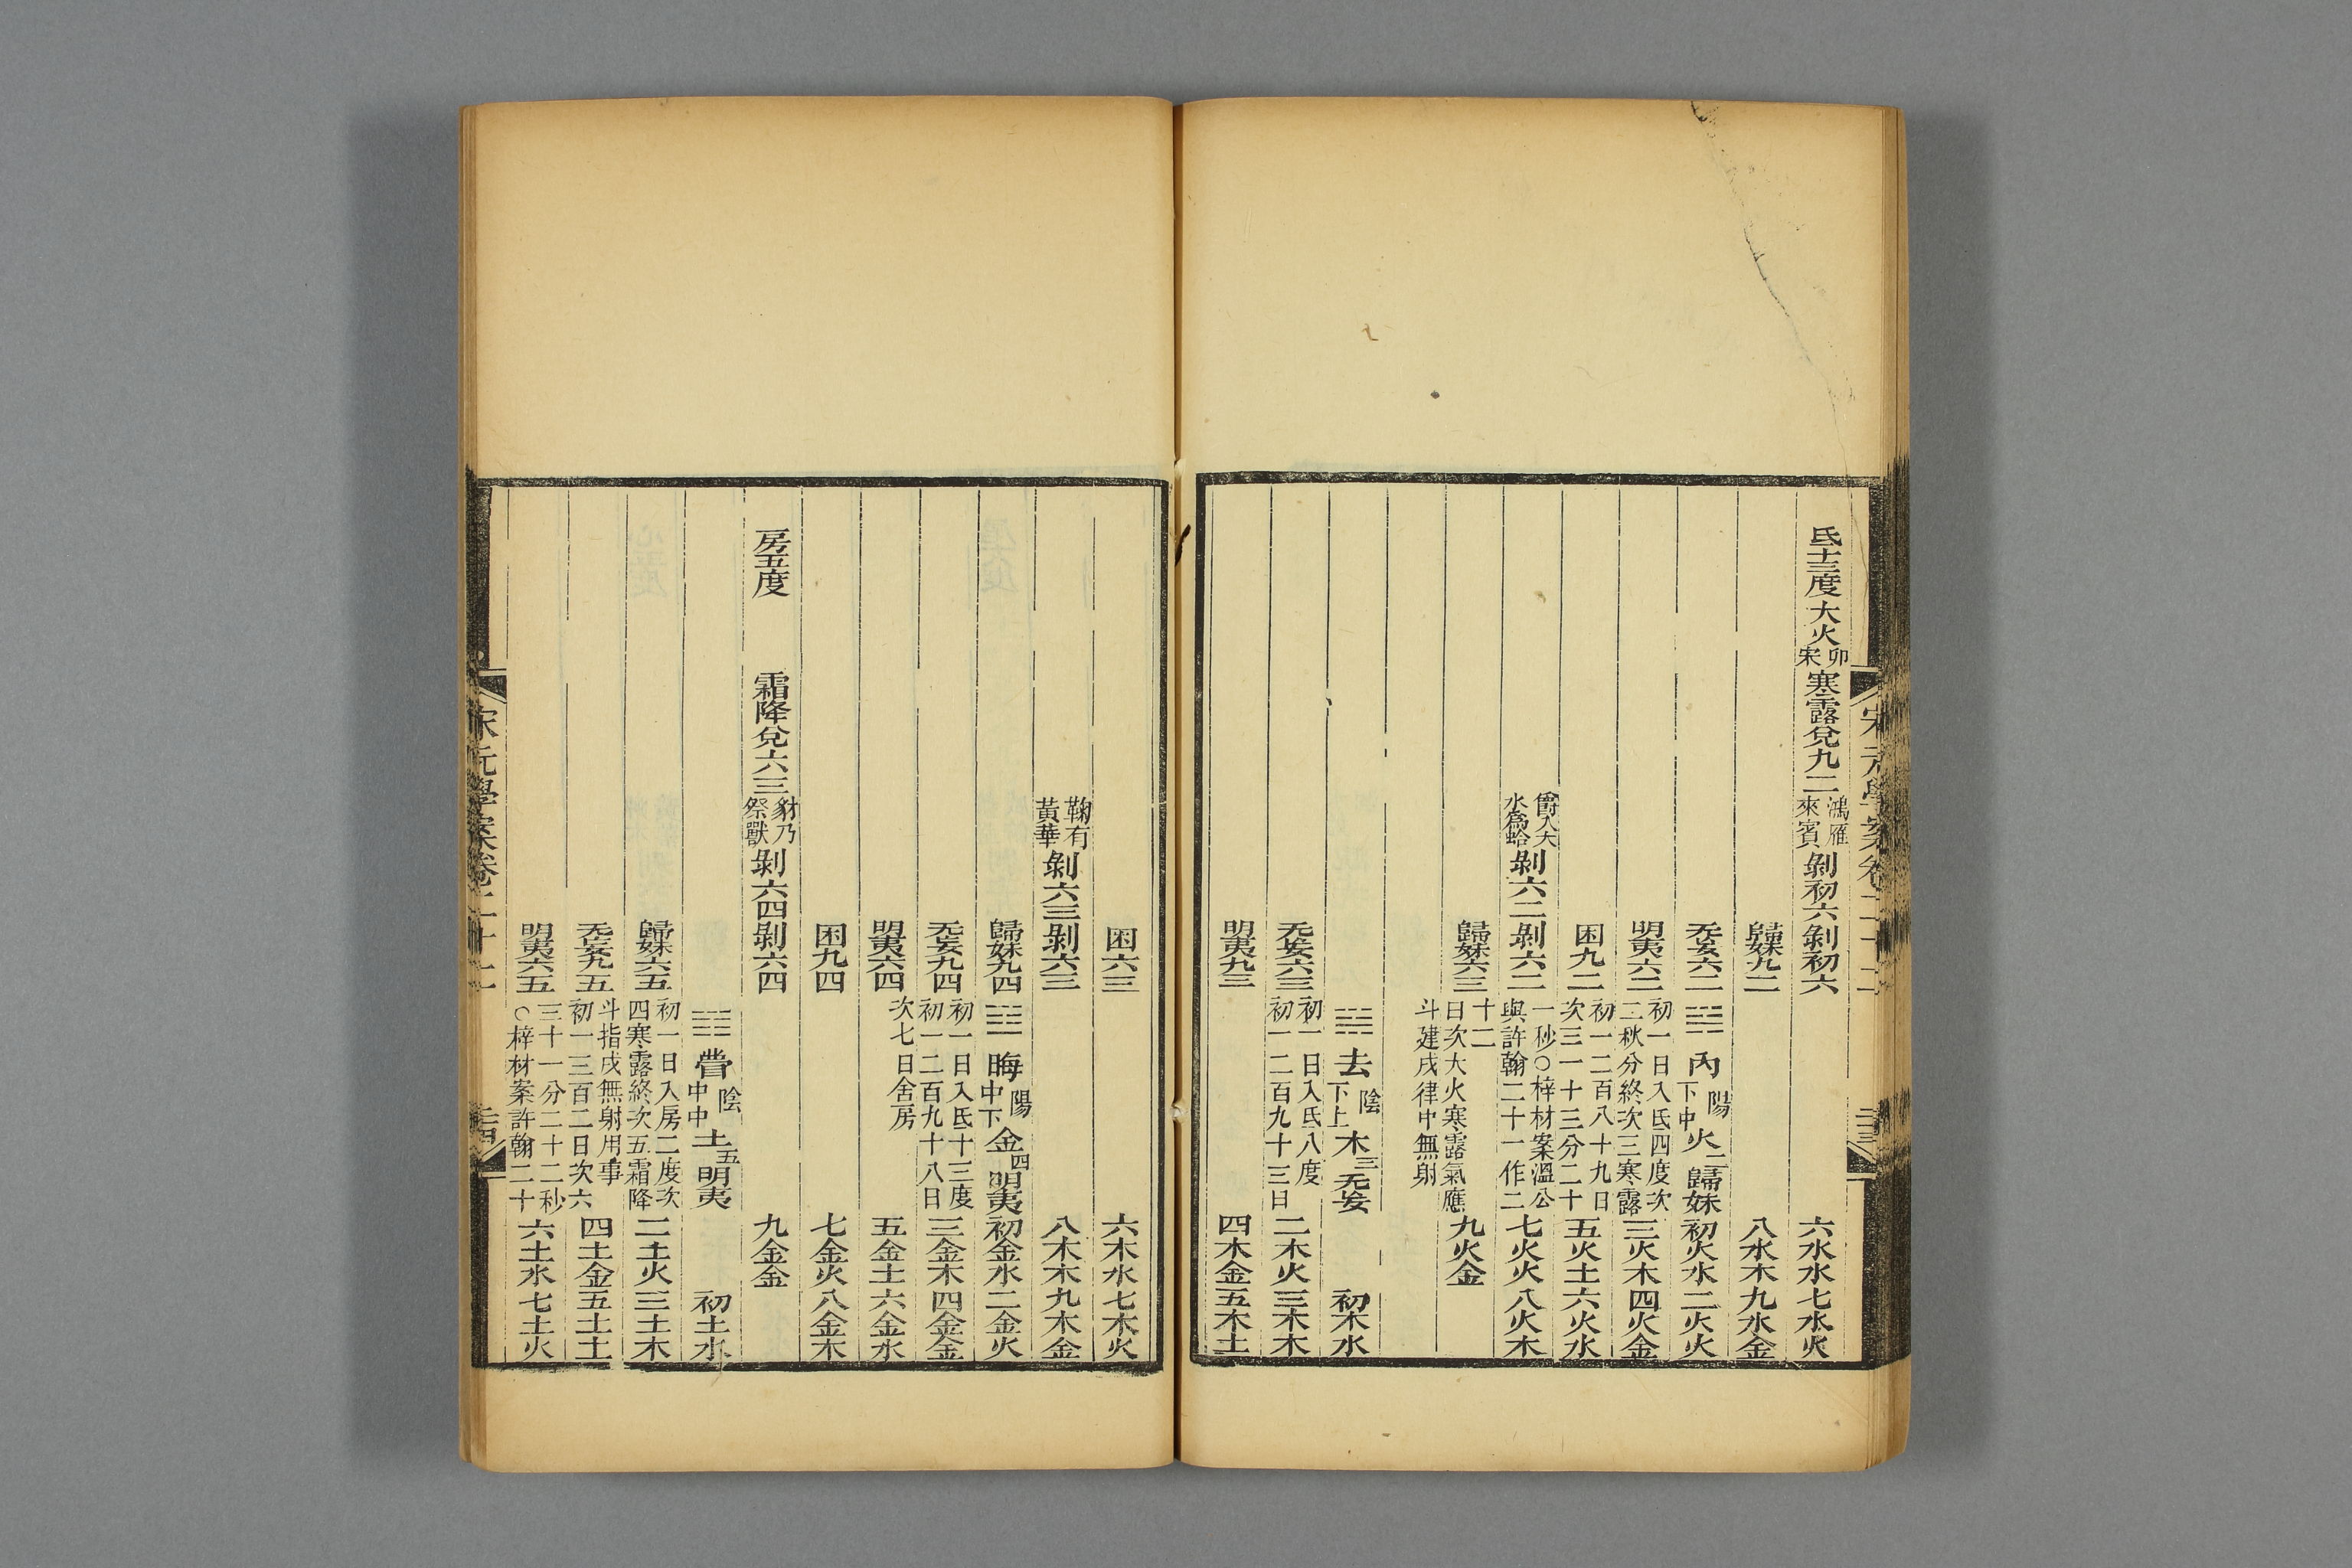 氐十三度大火卯宋寒露兌九二鴻雁來賓剝初六剝初六 六水水七水火
歸妹九二 八水木九水金
无妄六二 ䷵ 丙陽下中火二歸妹 初火水二火火
明夷六二 初一日入氐四度次二秋分終次三寒露 三火木四火金
困九二 初一二百八十九日次三一十三分二十 五火土六火水
爵入大水爲蛤剝六二剝六二 一秒○梓材案溫公與許翰二十一作二 七火火八火木
歸妹六三 十二日次大火寒露氣應 九火金
斗建戌律中無射
去陰下上木三无妄 初木水
无妄六三 初一日入氐八度初一二百九十三日 二木火三木木
明夷九三 四木金五木土
宋元學案卷
困六三 六木水七木火
鞠有黃華剝六三剝六三 八木木九木金
歸妹九四 晦陽中下金四明夷 初金水二金火
无妄九四 初一日入氐十三度初一二百九十八日 三金木四金金
明夷六四 次七日舍房 五金土六金水
困九四 七金火八金木
房五度 霜降兌六三豺乃祭獸剝六四剝六四 九金金
瞢陰中中土五明夷 初土水
歸妹六五 初一日入房二度次四寒露終次五霜降 二土火三土木
无妄九五 斗指戌無射用事初一三百二日次六 四土金五土土
明夷六五 三十一分二十二秒○梓材案許翰二十 六土水七土火
宋元學案卷